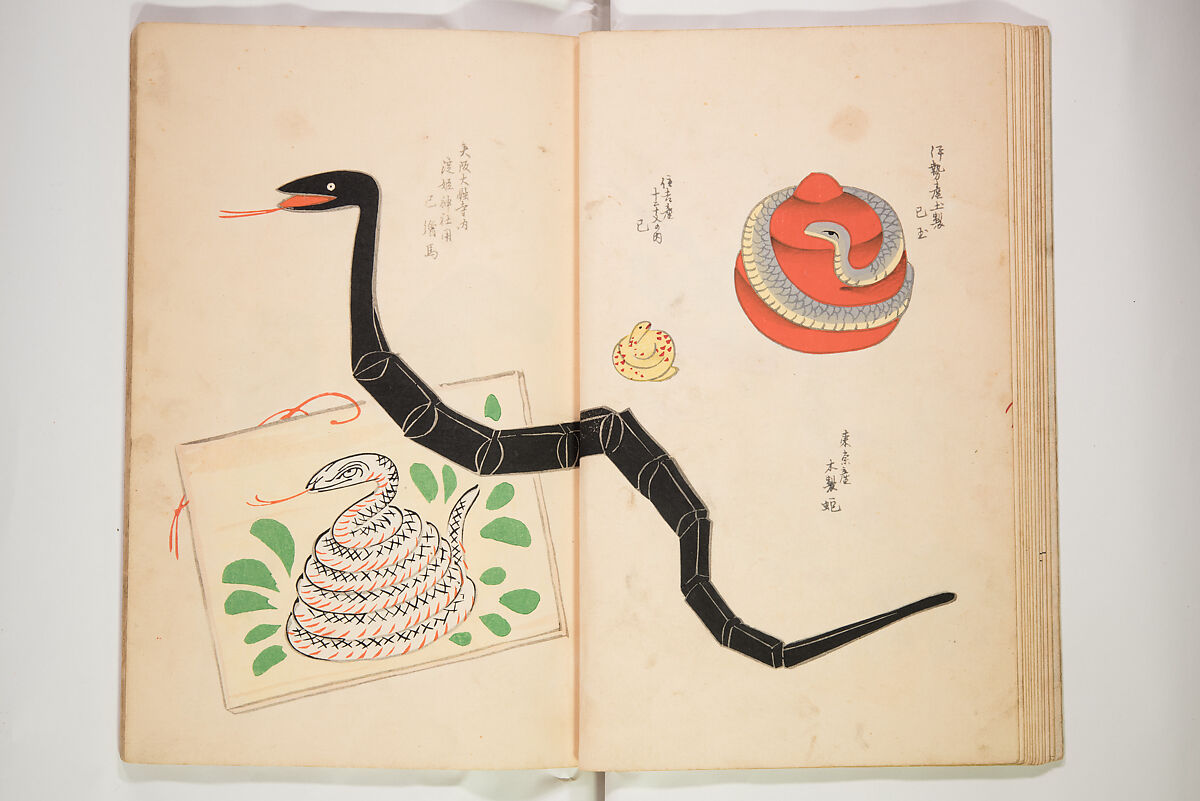 伊勢産土製
巳玉
住吉産
十二支の内
巳
東京産
木製蛇
大阪大融寺内
淀姫神社用
巳 繪馬